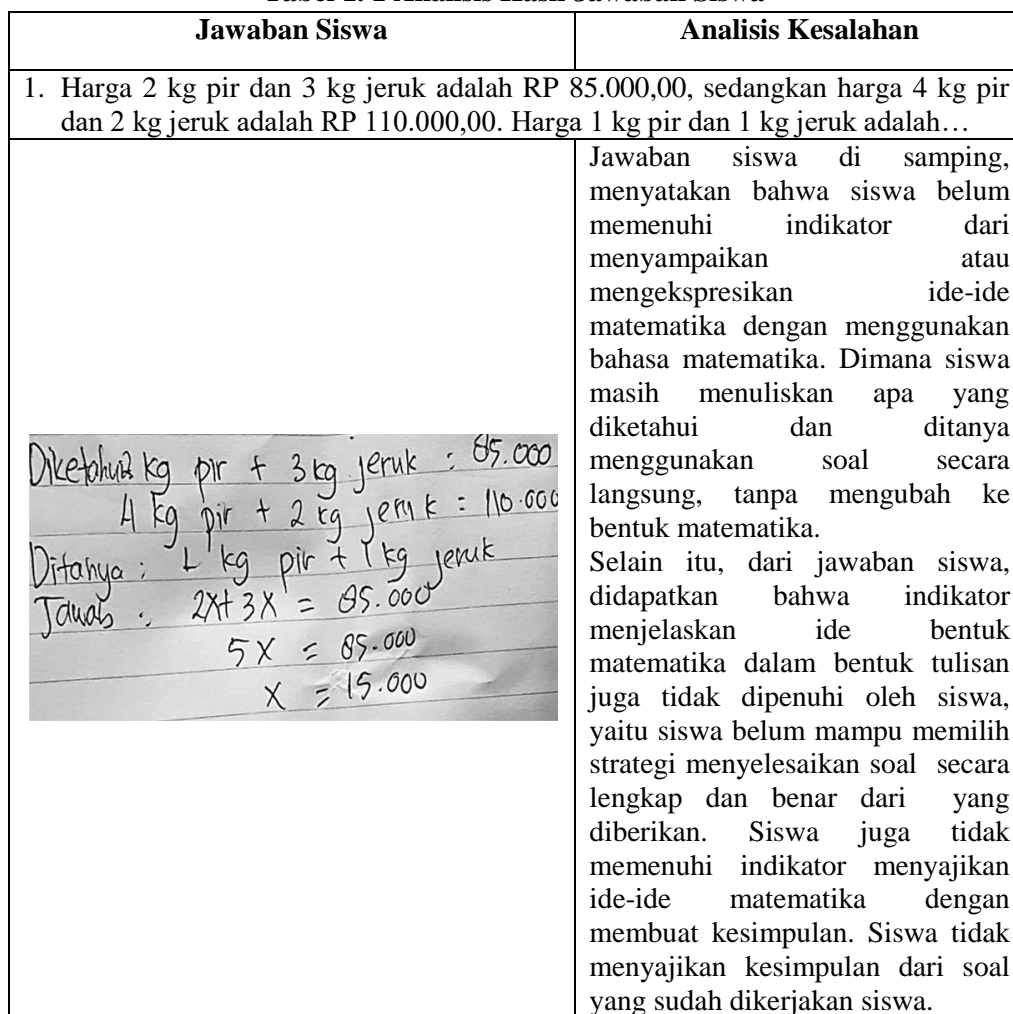 Jawaban Siswa
Analisis Kesalahan
1. Harga 2 kg pir dan 3 kg jeruk adalah RP 85.000,00, sedangkan harga 4 kg pir
dan 2 kg jeruk adalah RP 110.000,00. Harga 1 kg pir dan 1 kg jeruk adalah…
Diketahui 2 kg pir + 3 kg jeruk : 85.000
4 kg pir + 2 kg jeruk = 110.000
Ditanya : 1 kg pir + 1 kg jeruk
Jawab : 2x + 3x = 85.000
5x = 85.000
x = 15.000
Jawaban siswa di samping,
menyatakan bahwa siswa belum
memenuhi indikator dari
menyampaikan atau
mengekspresikan ide-ide
matematika dengan menggunakan
bahasa matematika. Dimana siswa
masih menuliskan apa yang
diketahui dan ditanya
menggunakan soal secara
langsung, tanpa mengubah ke
bentuk matematika.
Selain itu, dari jawaban siswa,
didapatkan bahwa indikator
menjelaskan ide bentuk
matematika dalam bentuk tulisan
juga tidak dipenuhi oleh siswa,
yaitu siswa belum mampu memilih
strategi menyelesaikan soal secara
lengkap dan benar dari yang
diberikan. Siswa juga tidak
memenuhi indikator menyajikan
ide-ide matematika dengan
membuat kesimpulan. Siswa tidak
menyajikan kesimpulan dari soal
yang sudah dikerjakan siswa.